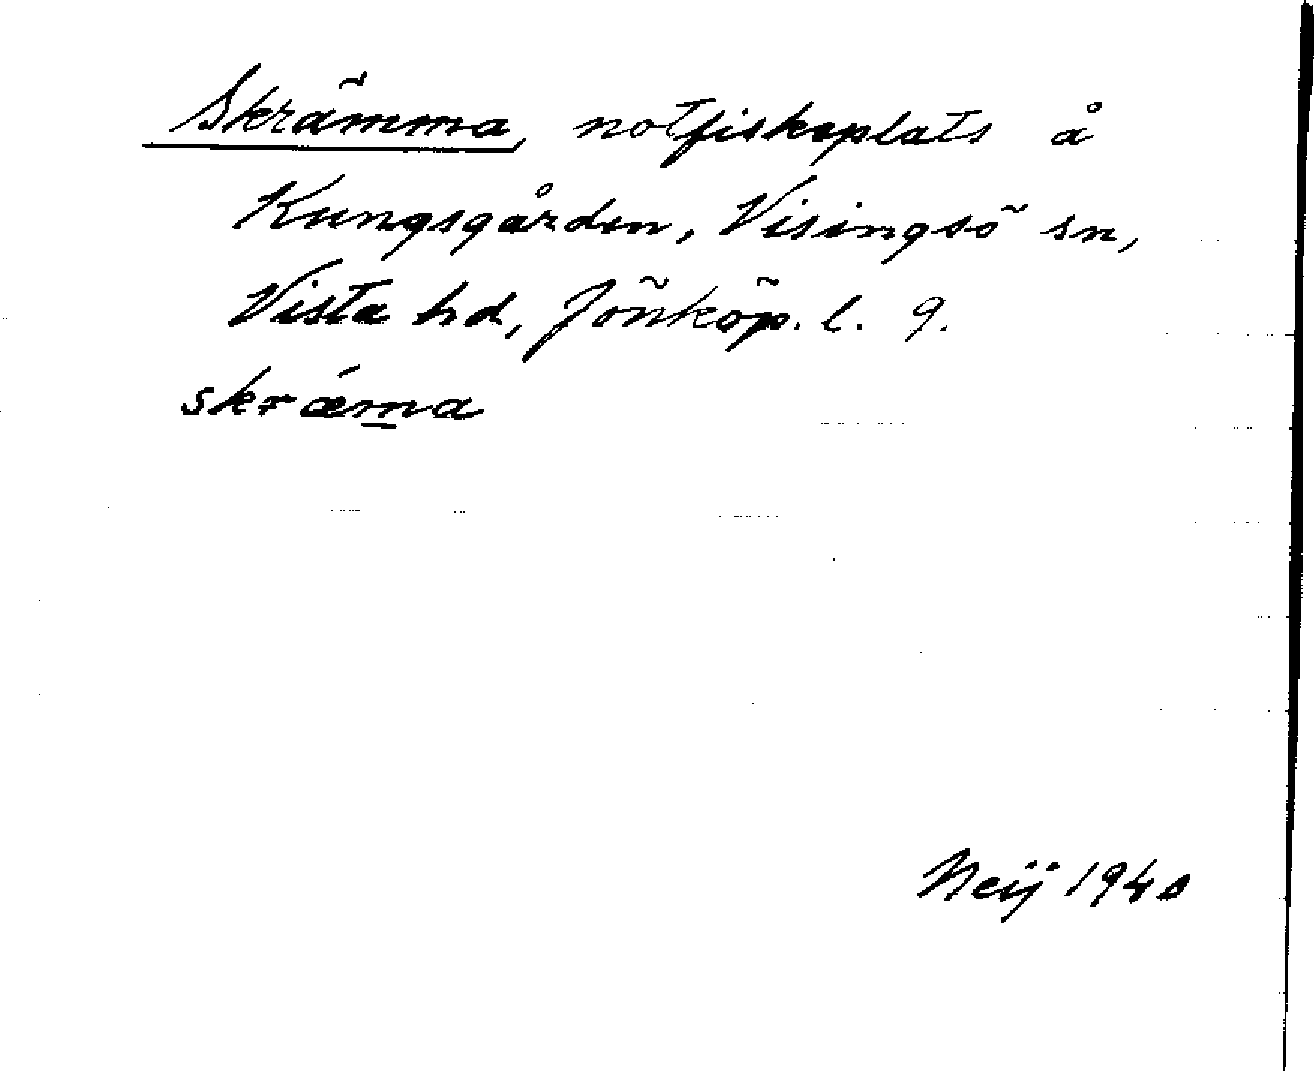 Skrämma, notfiskeplats å
Kungsgården, Visingsö sn,
Vista hd, Jönköp. l. 9.
skrǽm̲a
Neij 1940